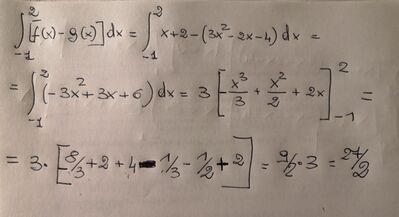 ∫₋₁² [f(x) - g(x)] dx = ∫₋₁² x+2 - (3x² - 2x - 4) dx =
= ∫₋₁² (-3x² + 3x + 6) dx = 3 [-x³/3 + x²/2 + 2x]₋₁² =
= 3 · [-8/3 + 2 + 4 - 1/3 - 1/2 + 2] = 9/2 · 3 = 27/2